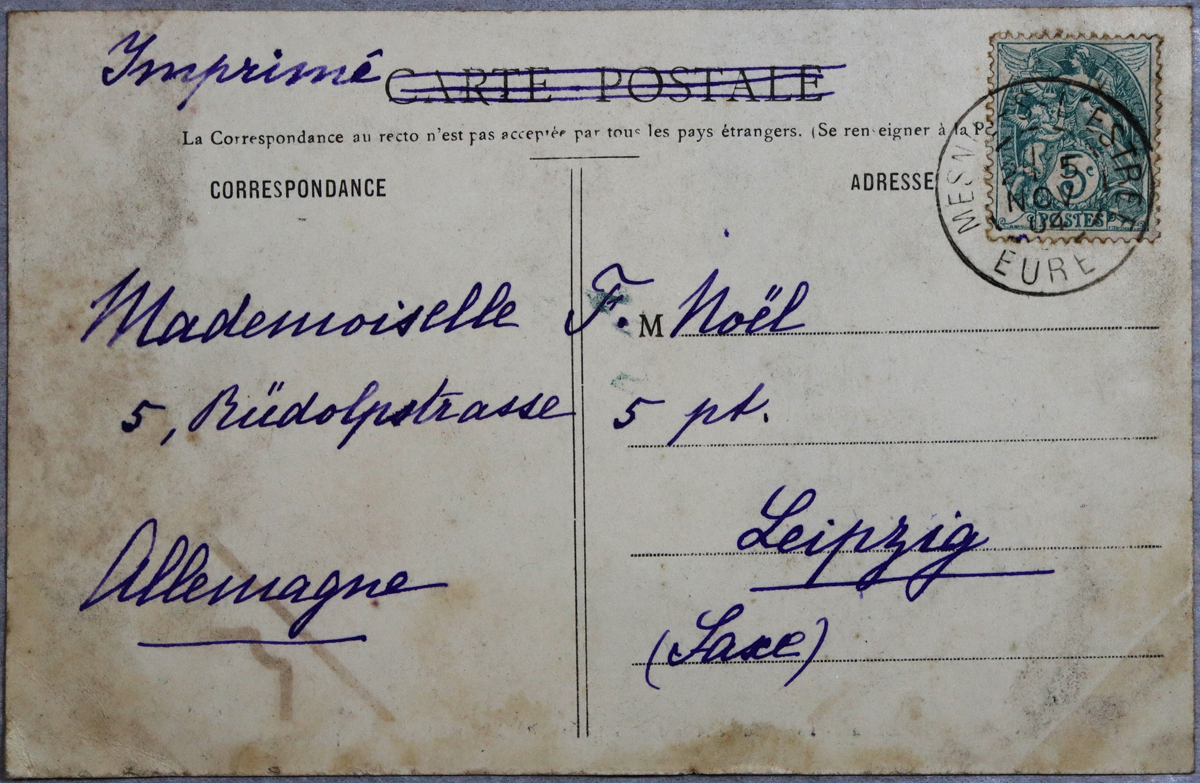 Imprimé
CARTE POSTALE
La Correspondance au recto n'est pas acceptée par tous les pays étrangers. (Se renseigner à la
CORRESPONDANCE
ADRESSE
5c
POSTES
5
NOV
04
EURE
Mademoiselle F. M Noël
5, Rüdolpstrasse 5 pt.
Leipzig
Allemagne
(Saxe)